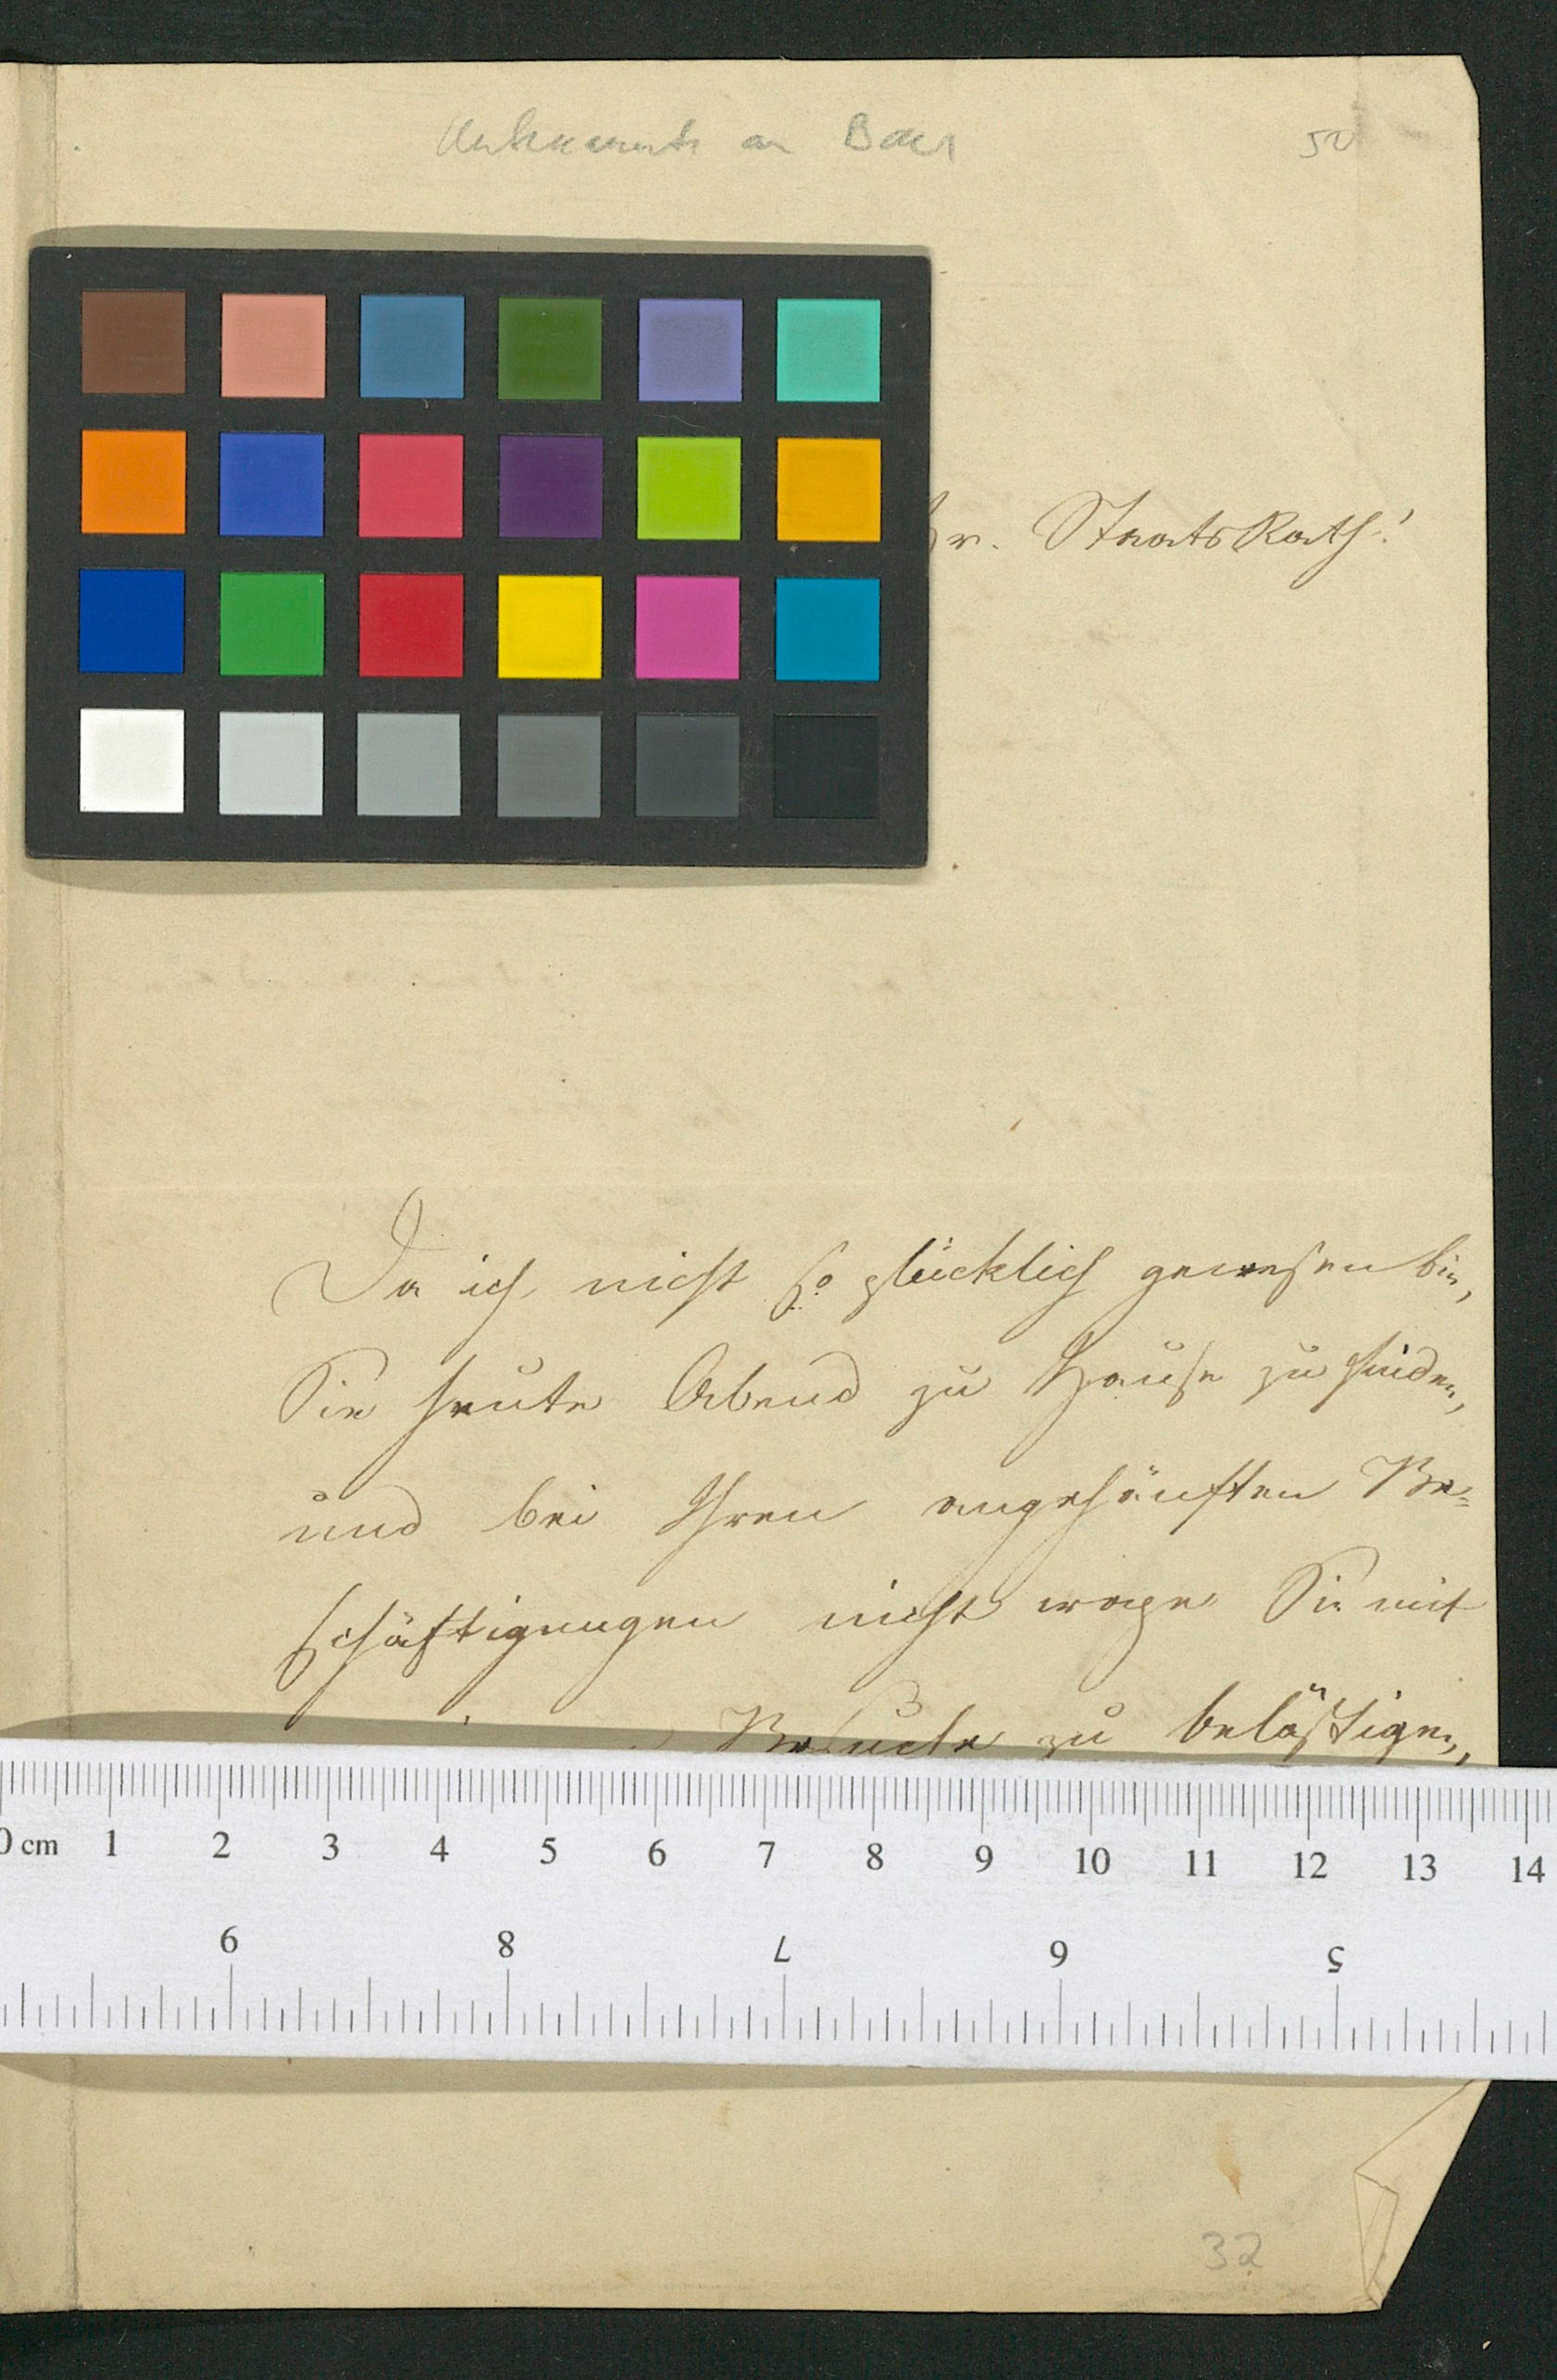 Unbekannt an Baer
50
Hr. StaatsRath!
Da ich nicht so glücklich gewesen bin,
Sie heute Abend zu Hause zu finden,
und bei Ihren angehäuften Be-
schäftigungen nicht wage Sie mit
Besuche zu belästigen,
0 cm 1 2 3 4 5 6 7 8 9 10 11 12 13 14
9 8 7 6 5
32